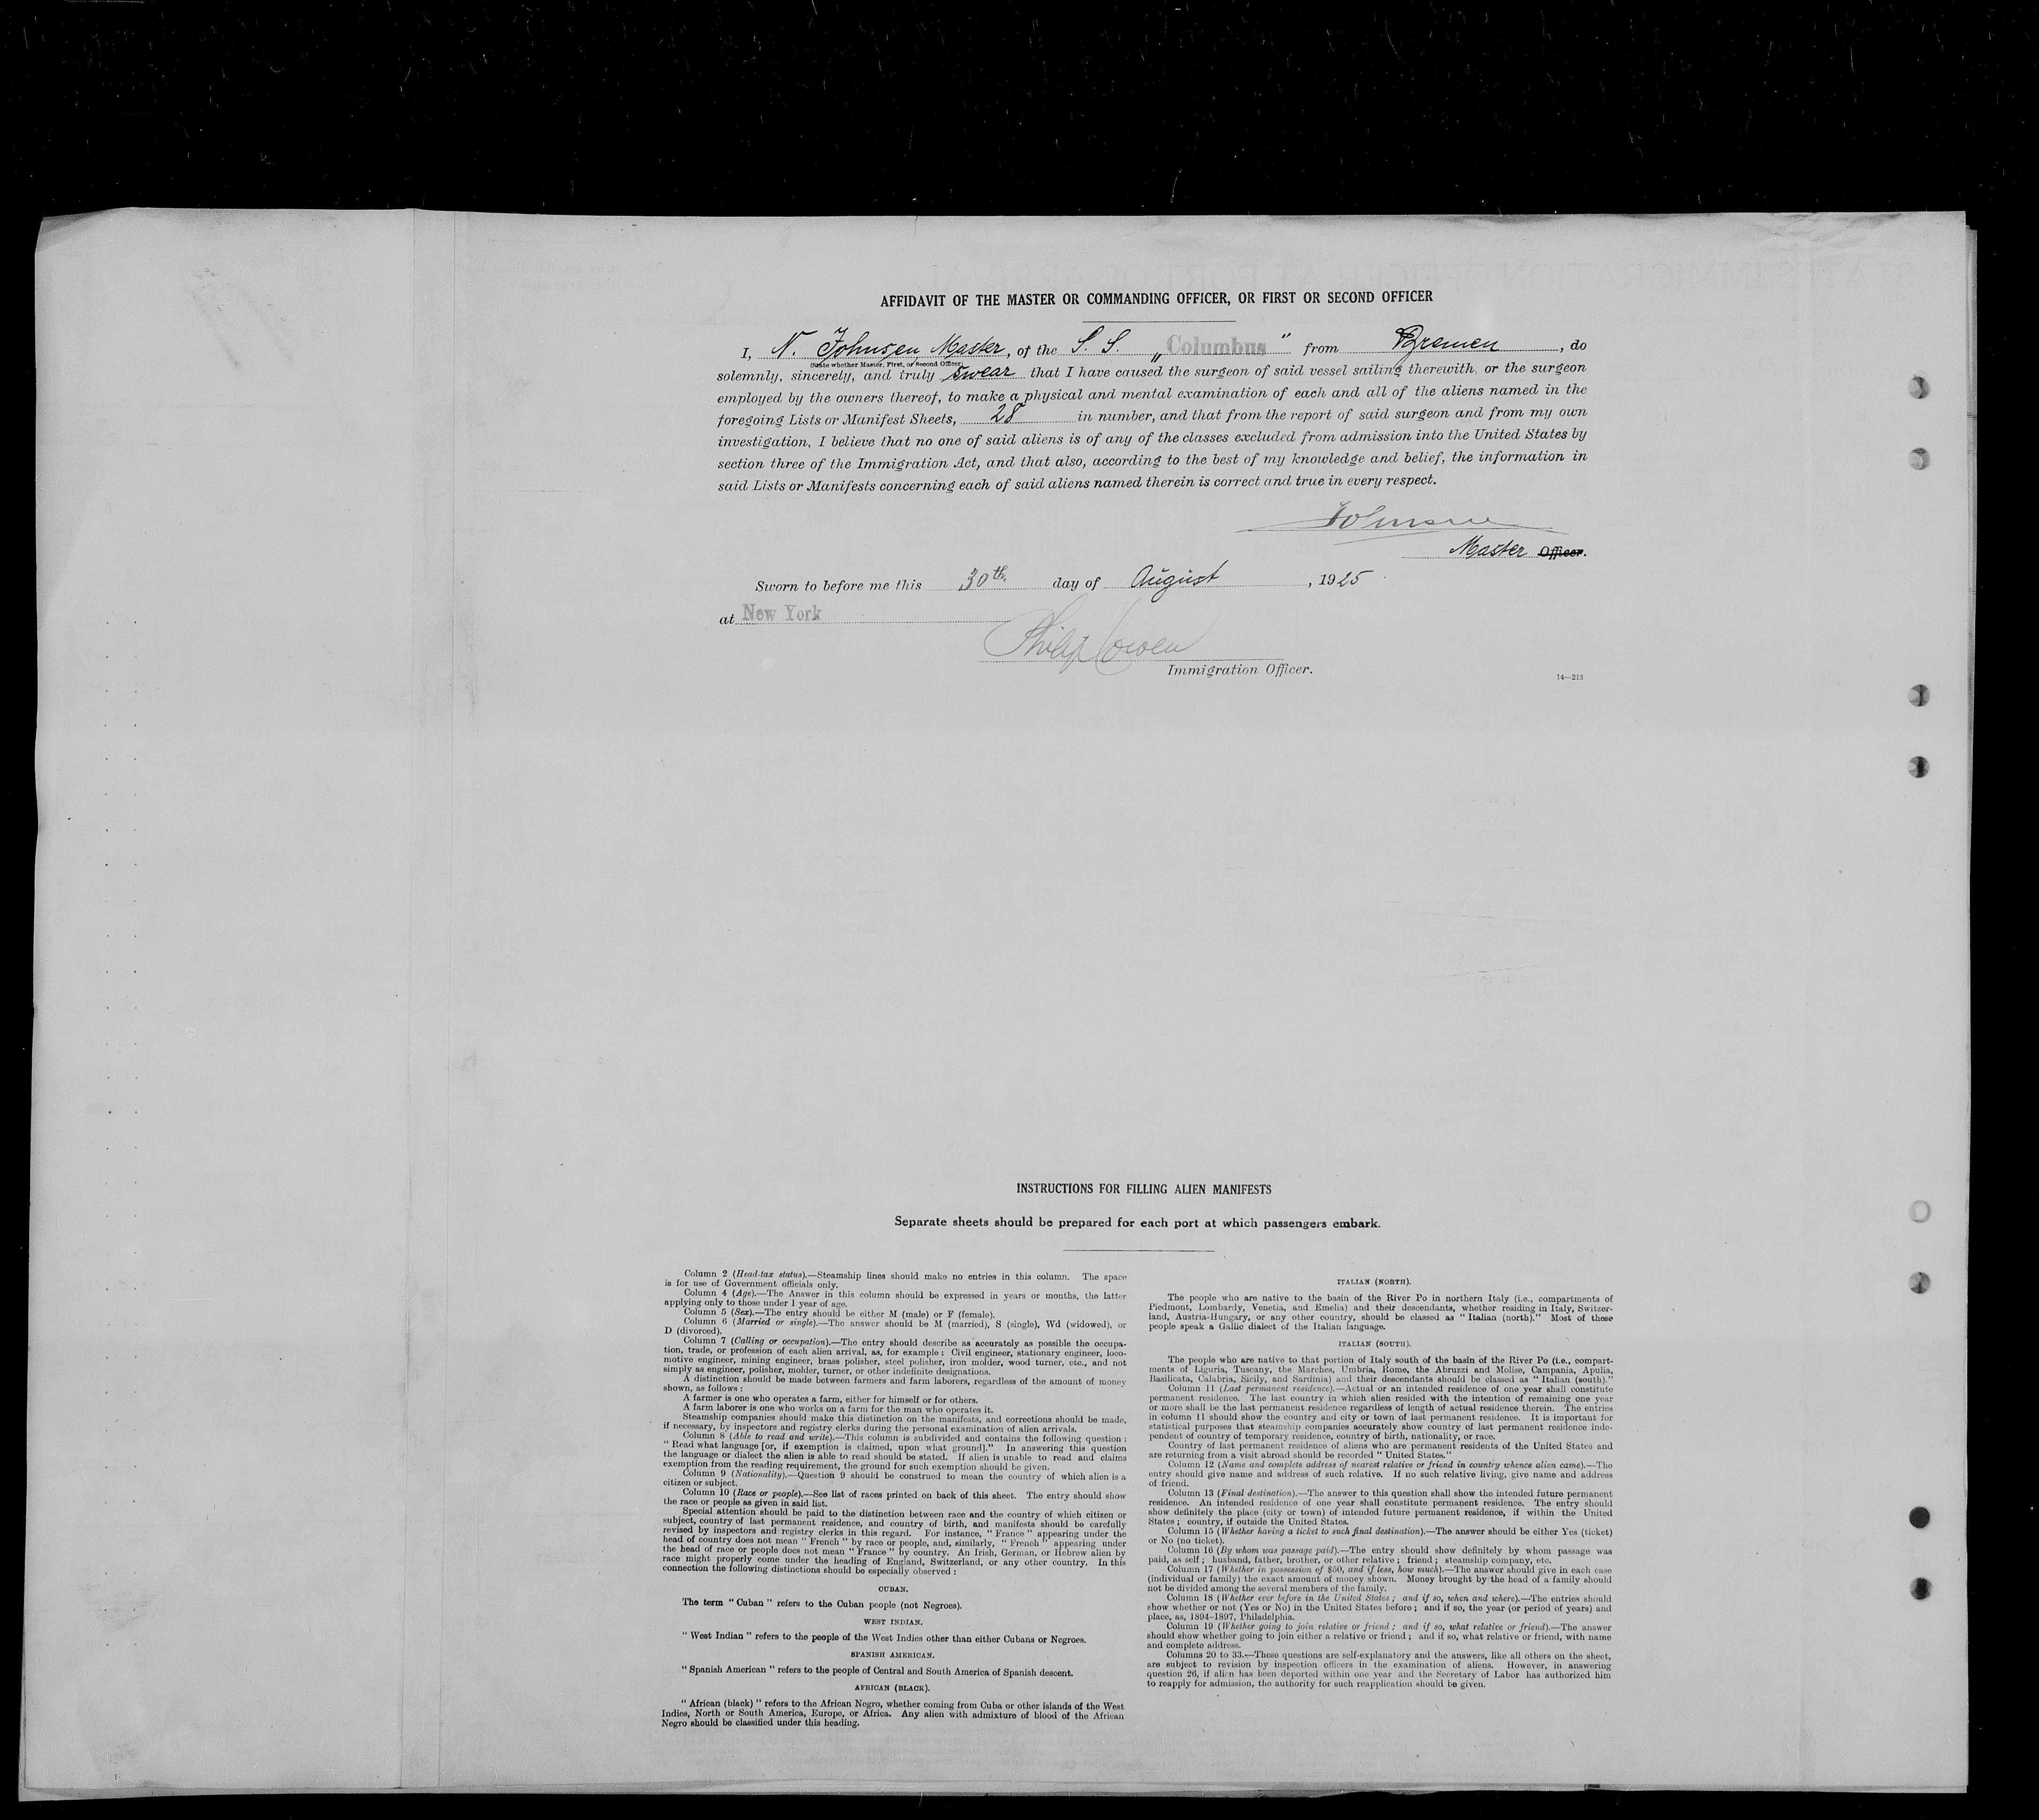 AFFIDAVIT OF THE MASTER OR COMMANDING OFFICER, OR FIRST OR SECOND OFFICER
I, N. Johnsen, Master, of the S. S. „Columbus" from Bremen, do
(State whether Master, First, or Second Officer)
solemnly, sincerely, and truly swear that I have caused the surgeon of said vessel sailing therewith, or the surgeon
employed by the owners thereof, to make a physical and mental examination of each and all of the aliens named in the
foregoing Lists or Manifest Sheets, 28 in number, and that from the report of said surgeon and from my own
investigation, I believe that no one of said aliens is of any of the classes excluded from admission into the United States by
section three of the Immigration Act, and that also, according to the best of my knowledge and belief, the information in
said Lists or Manifests concerning each of said aliens named therein is correct and true in every respect.
Johnsen
Master Officer.
Sworn to before me this 30th day of August, 1925
at New York
Philip Cowen
Immigration Officer.
14—213
INSTRUCTIONS FOR FILLING ALIEN MANIFESTS
Separate sheets should be prepared for each port at which passengers embark.
Column 2 (Head-tax status).—Steamship lines should make no entries in this column. The space
is for use of Government officials only.
Column 4 (Age).—The Answer in this column should be expressed in years or months, the latter
applying only to those under 1 year of age.
Column 5 (Sex).—The entry should be either M (male) or F (female).
Column 6 (Married or single).—The answer should be M (married), S (single), Wd (widowed), or
D (divorced).
Column 7 (Calling or occupation).—The entry should describe as accurately as possible the occupa-
tion, trade, or profession of each alien arrival, as, for example: Civil engineer, stationary engineer, loco-
motive engineer, mining engineer, brass polisher, steel polisher, iron molder, wood turner, etc., and not
simply as engineer, polisher, molder, turner, or other indefinite designations.
A distinction should be made between farmers and farm laborers, regardless of the amount of money
shown, as follows:
A farmer is one who operates a farm, either for himself or for others.
A farm laborer is one who works on a farm for the man who operates it.
Steamship companies should make this distinction on the manifests, and corrections should be made,
if necessary, by inspectors and registry clerks during the personal examination of alien arrivals.
Column 8 (Able to read and write).—This column is subdivided and contains the following question:
"Read what language [or, if exemption is claimed, upon what ground]." In answering this question
the language or dialect the alien is able to read should be stated. If alien is unable to read and claims
exemption from the reading requirement, the ground for such exemption should be given.
Column 9 (Nationality).—Question 9 should be construed to mean the country of which alien is a
citizen or subject.
Column 10 (Race or people).—See list of races printed on back of this sheet. The entry should show
the race or people as given in said list.
Special attention should be paid to the distinction between race and the country of which citizen or
subject, country of last permanent residence, and country of birth, and manifests should be carefully
revised by inspectors and registry clerks in this regard. For instance, "France" appearing under the
head of country does not mean "French" by race or people, and, similarly, "French" appearing under
the head of race or people does not mean "France" by country. An Irish, German, or Hebrew alien by
race might properly come under the heading of England, Switzerland, or any other country. In this
connection the following distinctions should be especially observed:
CUBAN.
The term "Cuban" refers to the Cuban people (not Negroes).
WEST INDIAN.
"West Indian" refers to the people of the West Indies other than either Cubans or Negroes.
SPANISH AMERICAN.
"Spanish American" refers to the people of Central and South America of Spanish descent.
AFRICAN (BLACK).
"African (black)" refers to the African Negro, whether coming from Cuba or other islands of the West
Indies, North or South America, Europe, or Africa. Any alien with admixture of blood of the African
Negro should be classified under this heading.
ITALIAN (NORTH).
The people who are native to the basin of the River Po in northern Italy (i.e., compartments of
Piedmont, Lombardy, Venetia, and Emelia) and their descendants, whether residing in Italy, Switzer-
land, Austria-Hungary, or any other country, should be classed as "Italian (north)." Most of these
people speak a Gallic dialect of the Italian language.
ITALIAN (SOUTH).
The people who are native to that portion of Italy south of the basin of the River Po (i.e., compart-
ments of Liguria, Tuscany, the Marches, Umbria, Rome, the Abruzzi and Molise, Campania, Apulia,
Basilicata, Calabria, Sicily, and Sardinia) and their descendants should be classed as "Italian (south)."
Column 11 (Last permanent residence).—Actual or an intended residence of one year shall constitute
permanent residence. The last country in which alien resided with the intention of remaining one year
or more shall be the last permanent residence regardless of length of actual residence therein. The entries
in column 11 should show the country and city or town of last permanent residence. It is important for
statistical purposes that steamship companies accurately show country of last permanent residence inde-
pendent of country of temporary residence, country of birth, nationality, or race.
Country of last permanent residence of aliens who are permanent residents of the United States and
are returning from a visit abroad should be recorded "United States."
Column 12 (Name and complete address of nearest relative or friend in country whence alien came).—The
entry should give name and address of such relative. If no such relative living, give name and address
of friend.
Column 13 (Final destination).—The answer to this question shall show the intended future permanent
residence. An intended residence of one year shall constitute permanent residence. The entry should
show definitely the place (city or town) of intended future permanent residence, if within the United
States; country, if outside the United States.
Column 15 (Whether having a ticket to such final destination).—The answer should be either Yes (ticket)
or No (no ticket).
Column 16 (By whom was passage paid).—The entry should show definitely by whom passage was
paid, as self; husband, father, brother, or other relative; friend; steamship company, etc.
Column 17 (Whether in possession of $50, and if less, how much).—The answer should give in each case
(individual or family) the exact amount of money shown. Money brought by the head of a family should
not be divided among the several members of the family.
Column 18 (Whether ever before in the United States; and if so, when and where).—The entries should
show whether or not (Yes or No) in the United States before; and if so, the year (or period of years) and
place, as, 1894–1897, Philadelphia.
Column 19 (Whether going to join relative or friend; and if so, what relative or friend).—The answer
should show whether going to join either a relative or friend; and if so, what relative or friend, with name
and complete address.
Columns 20 to 33.—These questions are self-explanatory and the answers, like all others on the sheet,
are subject to revision by inspection officers in the examination of aliens. However, in answering
question 26, if alien has been deported within one year and the Secretary of Labor has authorized him
to reapply for admission, the authority for such reapplication should be given.